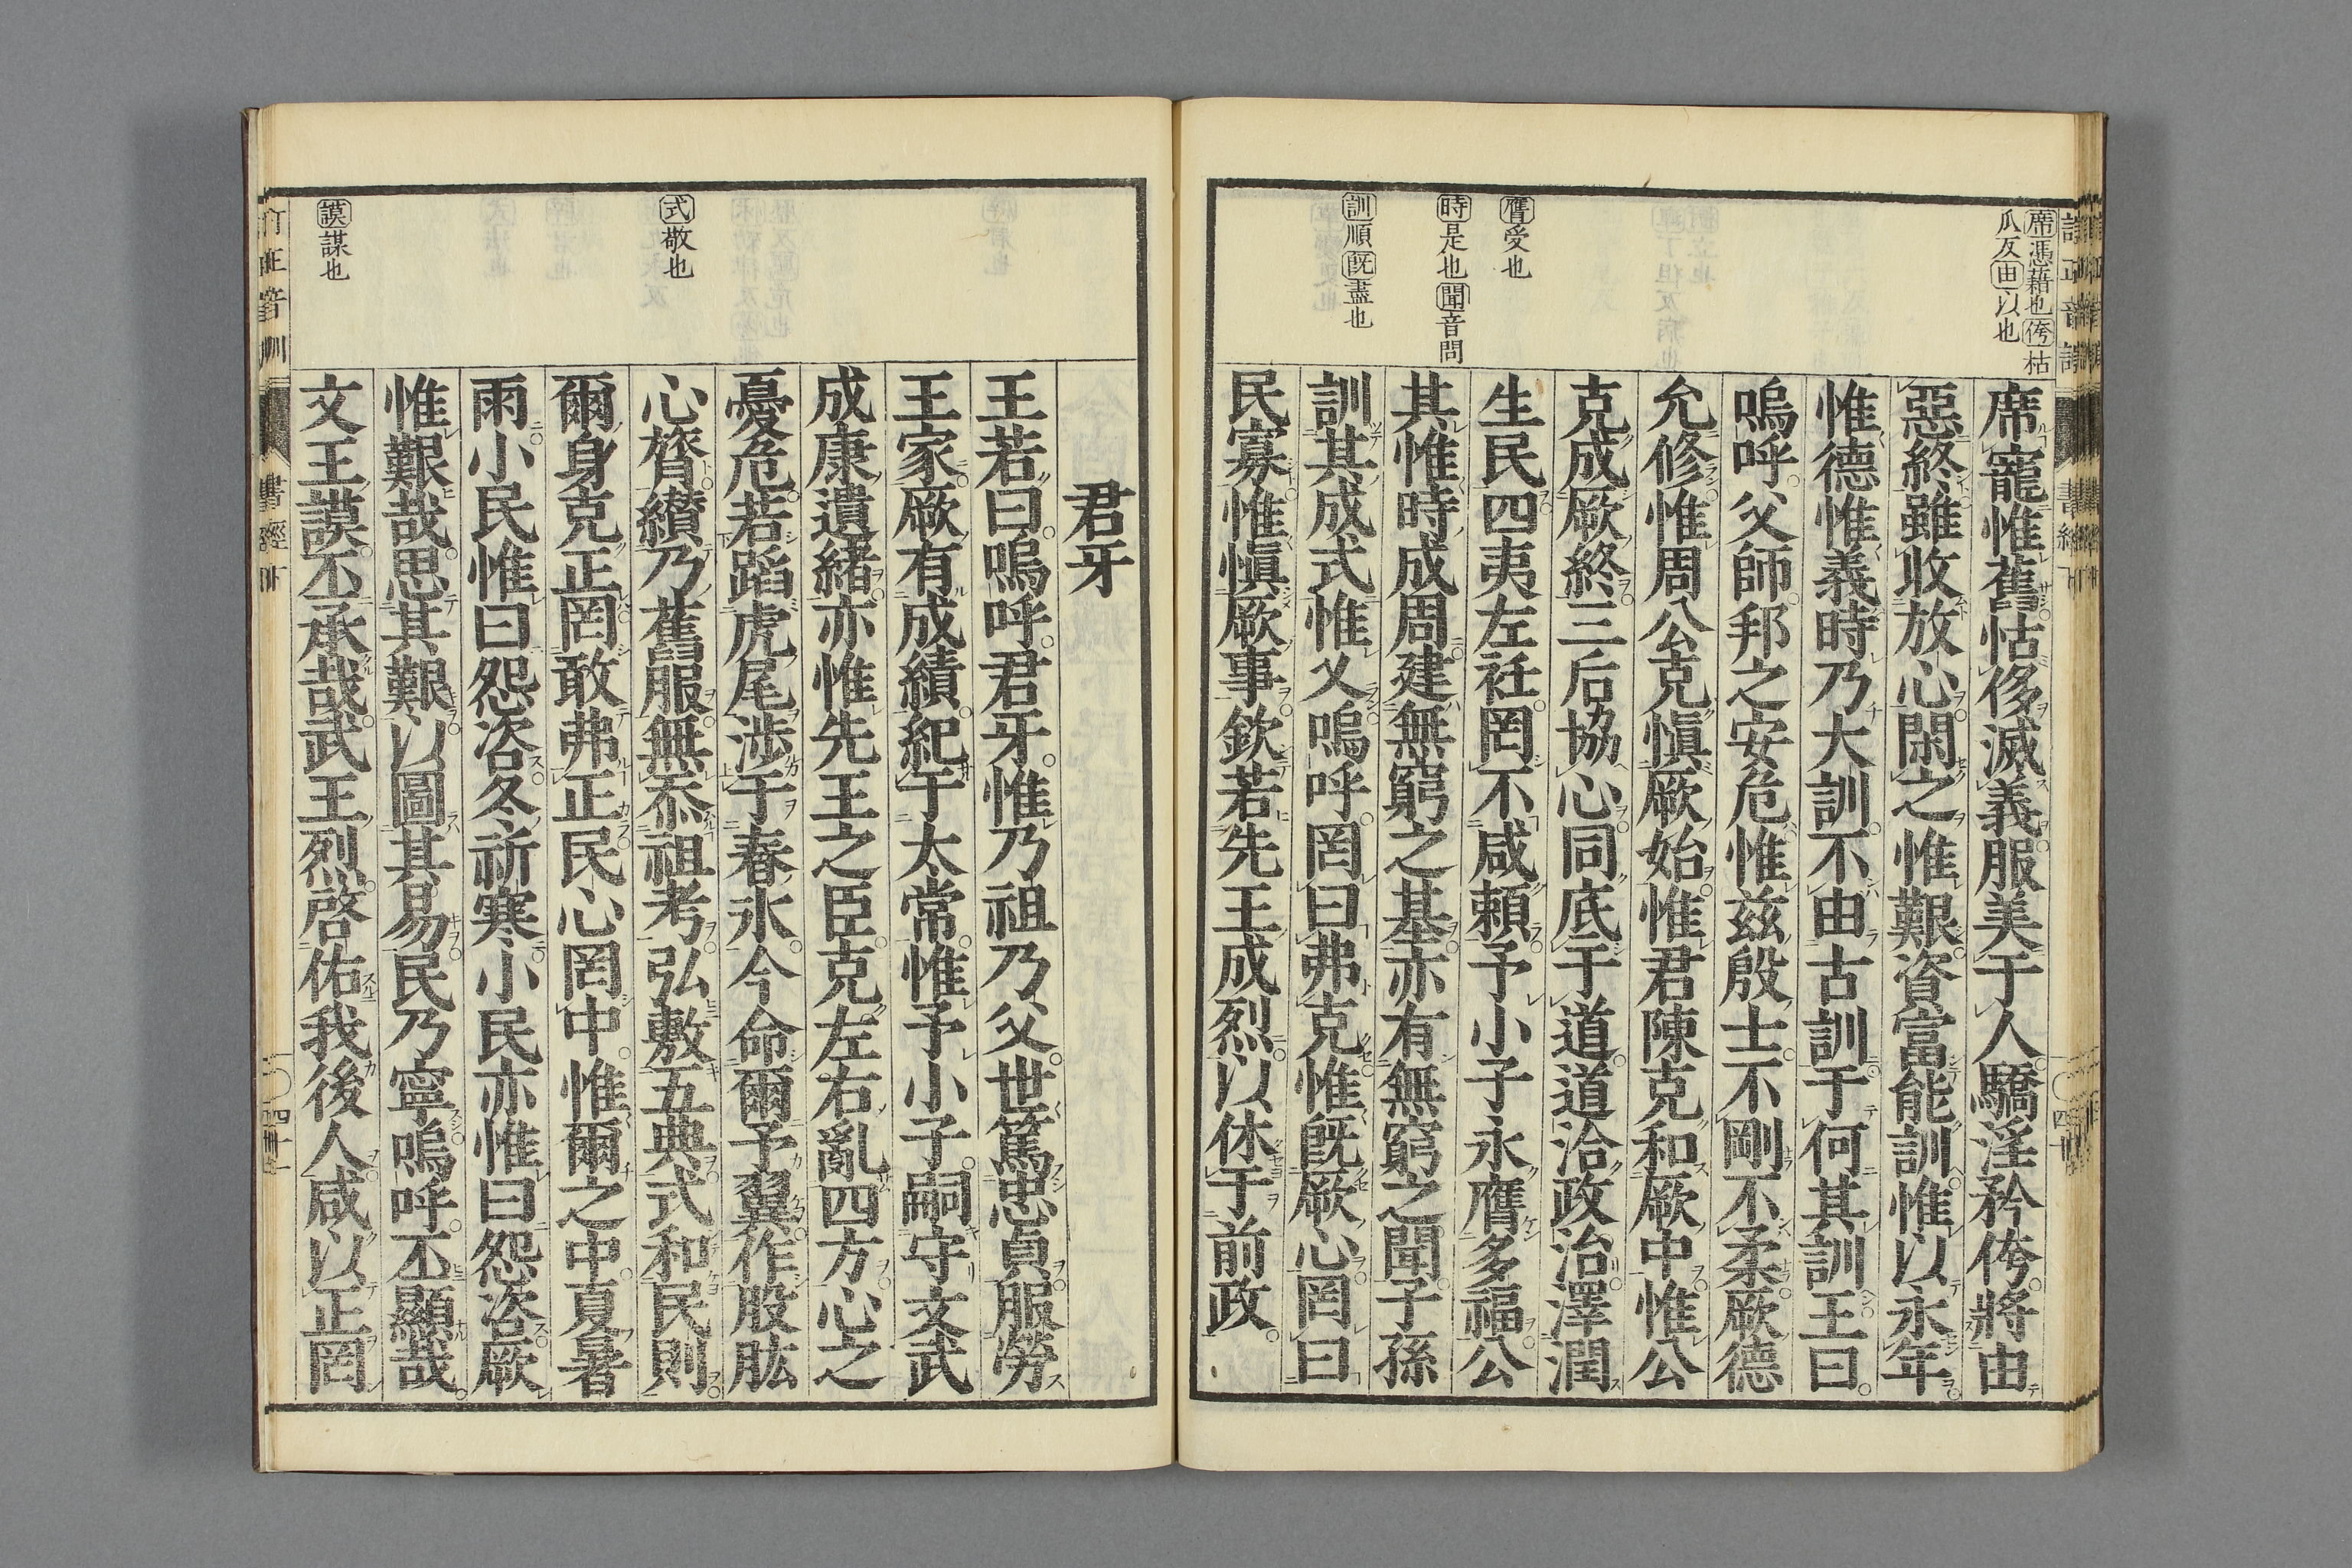 席憑藉也侉枯
瓜反由以也
膺受也
時是也聞音問
訓順既盡也
席寵惟舊怙侈滅義服美于人驕淫矜侉將由
惡終雖收放心閑之惟艱資富能訓惟以永年
惟德惟義時乃大訓不由古訓于何其訓王曰
嗚呼父師邦之安危惟茲殷士不剛不柔厥德
允修惟周公克愼厥始惟君陳克和厥中惟公
克成厥終三后協心同底于道道洽政治澤潤
生民四夷左衽罔不咸賴予小子永膺多福公
其惟時成周建無窮之基亦有無窮之聞子孫
訓其成式惟乂嗚呼罔曰弗克惟旣厥心罔曰
民寡惟愼厥事欽若先王成烈以休于前政
式敬也
謨謀也
君牙
王若曰嗚呼君牙惟乃祖乃父世篤忠貞服勞
王家厥有成績紀于太常惟予小子嗣守文武
成康遺緒亦惟先王之臣克左右亂四方心之
憂危若蹈虎尾涉于春氷今命爾予翼作股肱
心膂纉乃舊服無忝祖考弘敷五典式和民則
爾身克正罔敢弗正民心罔中惟爾之中夏暑
雨小民惟曰怨咨冬祈寒小民亦惟曰怨咨厥
惟艱哉思其艱以圖其易民乃寧嗚呼丕顯哉
文王謨丕承哉武王烈啓佑我後人咸以正罔